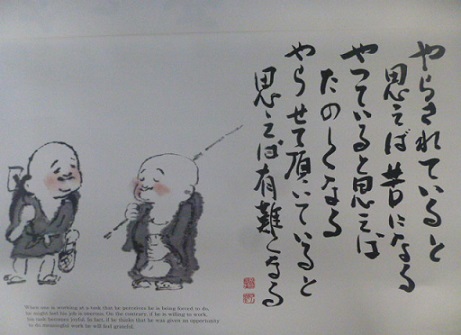 やらされていると
思えば苦になる
やっていると思えば
たのしくなる
やらせて頂いていると
思えば有難くなる
When one is working at a task that he perceives he is being forced to do,
he might feel his job is onerous. On the contrary, if he is willing to work,
his task becomes joyful. In fact, if he thinks that he was given an opportunity
to do meaningful work he will feel grateful.